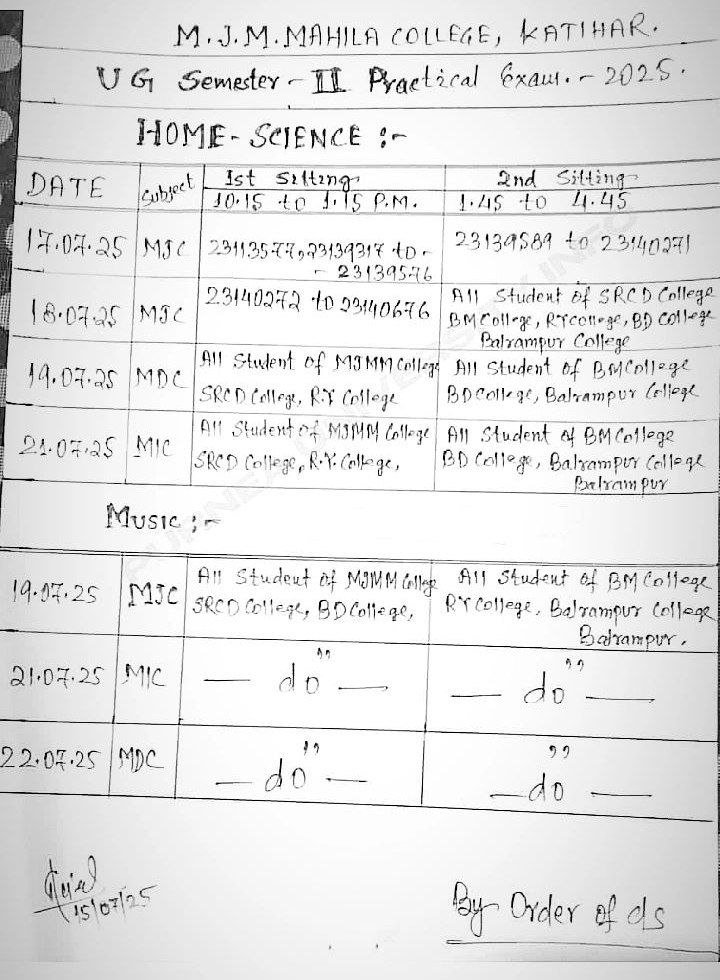 M.J.M. MAHILA COLLEGE, KATIHAR.
UG Semester - II Practical Exam. - 2025.
HOME-SCIENCE :-
DATE Subject 1st Sitting 2nd Sitting
10.15 to 1.15 P.M. 1.45 to 4.45
17.07.25 MJC 23113577, 23139317 to - 23139589 to 23140271
- 23139576
18.07.25 MJC 23140272 to 23140676 All Student of SRCD College
BM College, RY College, BD College
Balrampur College
19.07.25 MDC All Student of MJMM College All Student of BM College
SRCD College, R.Y College BD College, Balrampur College
21.07.25 MIC All Student of MJMM College All Student of BM College
SRCD College, R.Y. College, BD College, Balrampur College
Balrampur
MUSIC :-
19.07.25 MJC All Student of MJMM College All Student of BM College
SRCD College, BD College, RY College, Balrampur College
Balrampur.
21.07.25 MIC — do — — do —
22.07.25 MDC — do — — do —
15/07/25
By Order of cls